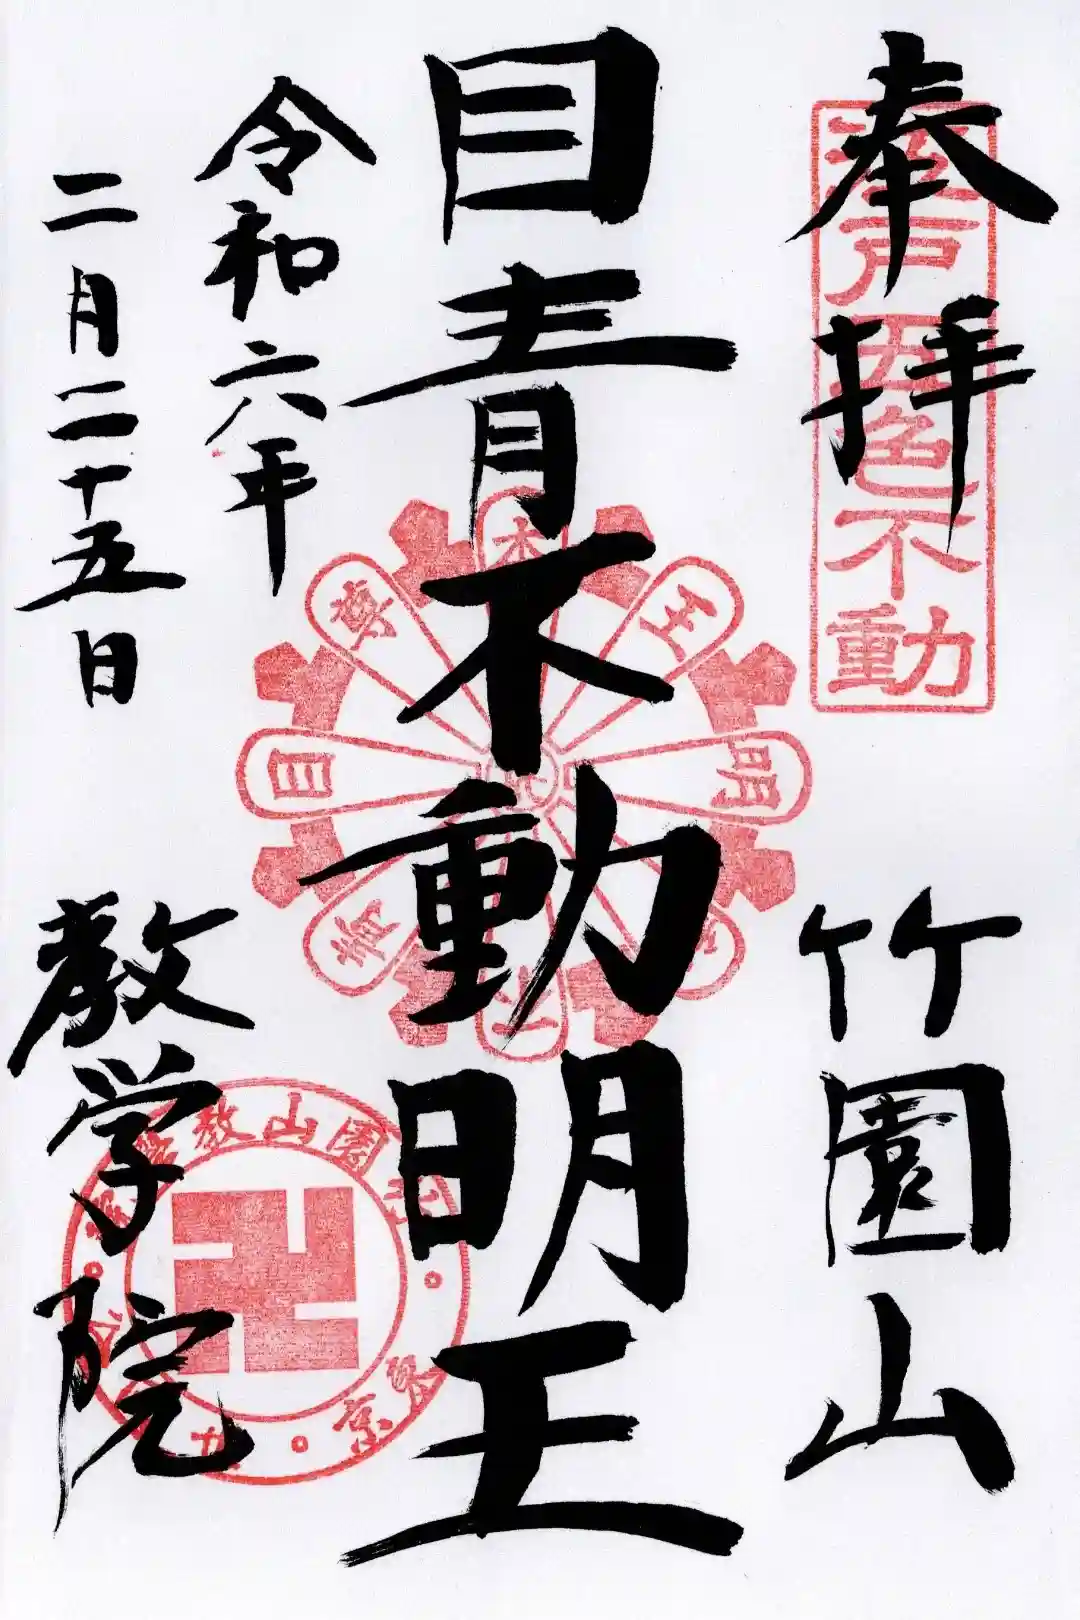 奉拝
竹園山
江戸五色不動
目青不動明王
令和六年
二月二十五日
教学院
竹園山教學院
東京